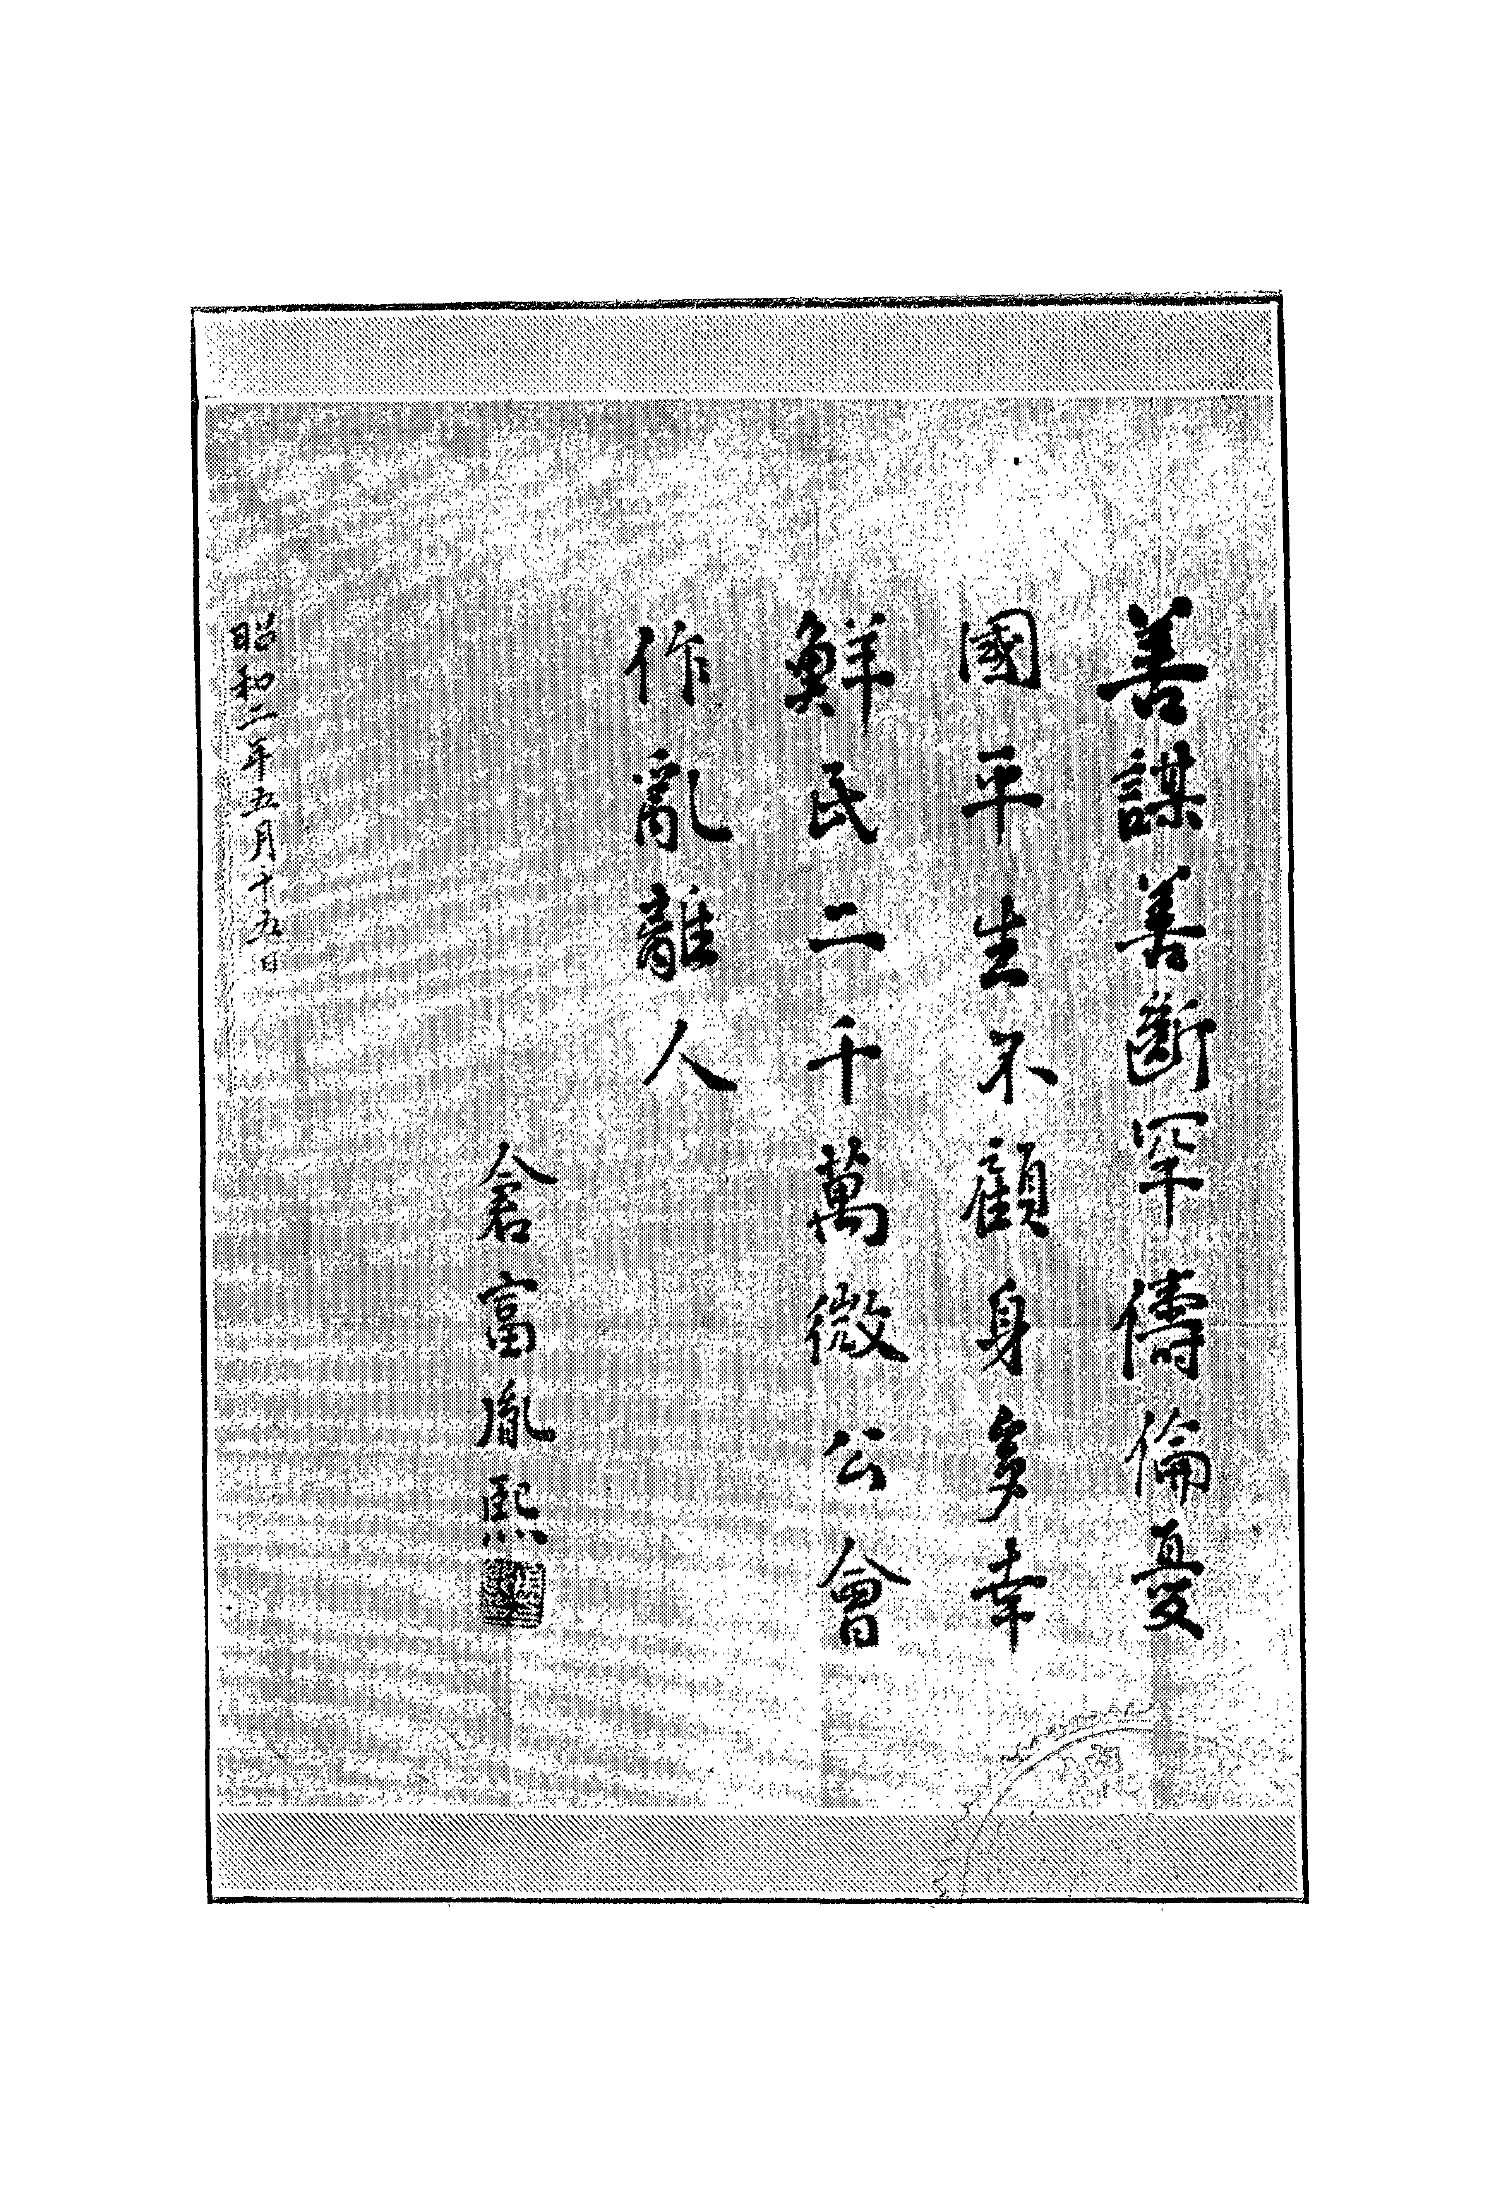 善謀善斷罕儔倫憂
國平生不顧身多幸
鮮民二千萬微公會
作亂離人
倉富胤熙
昭和二年五月十五日